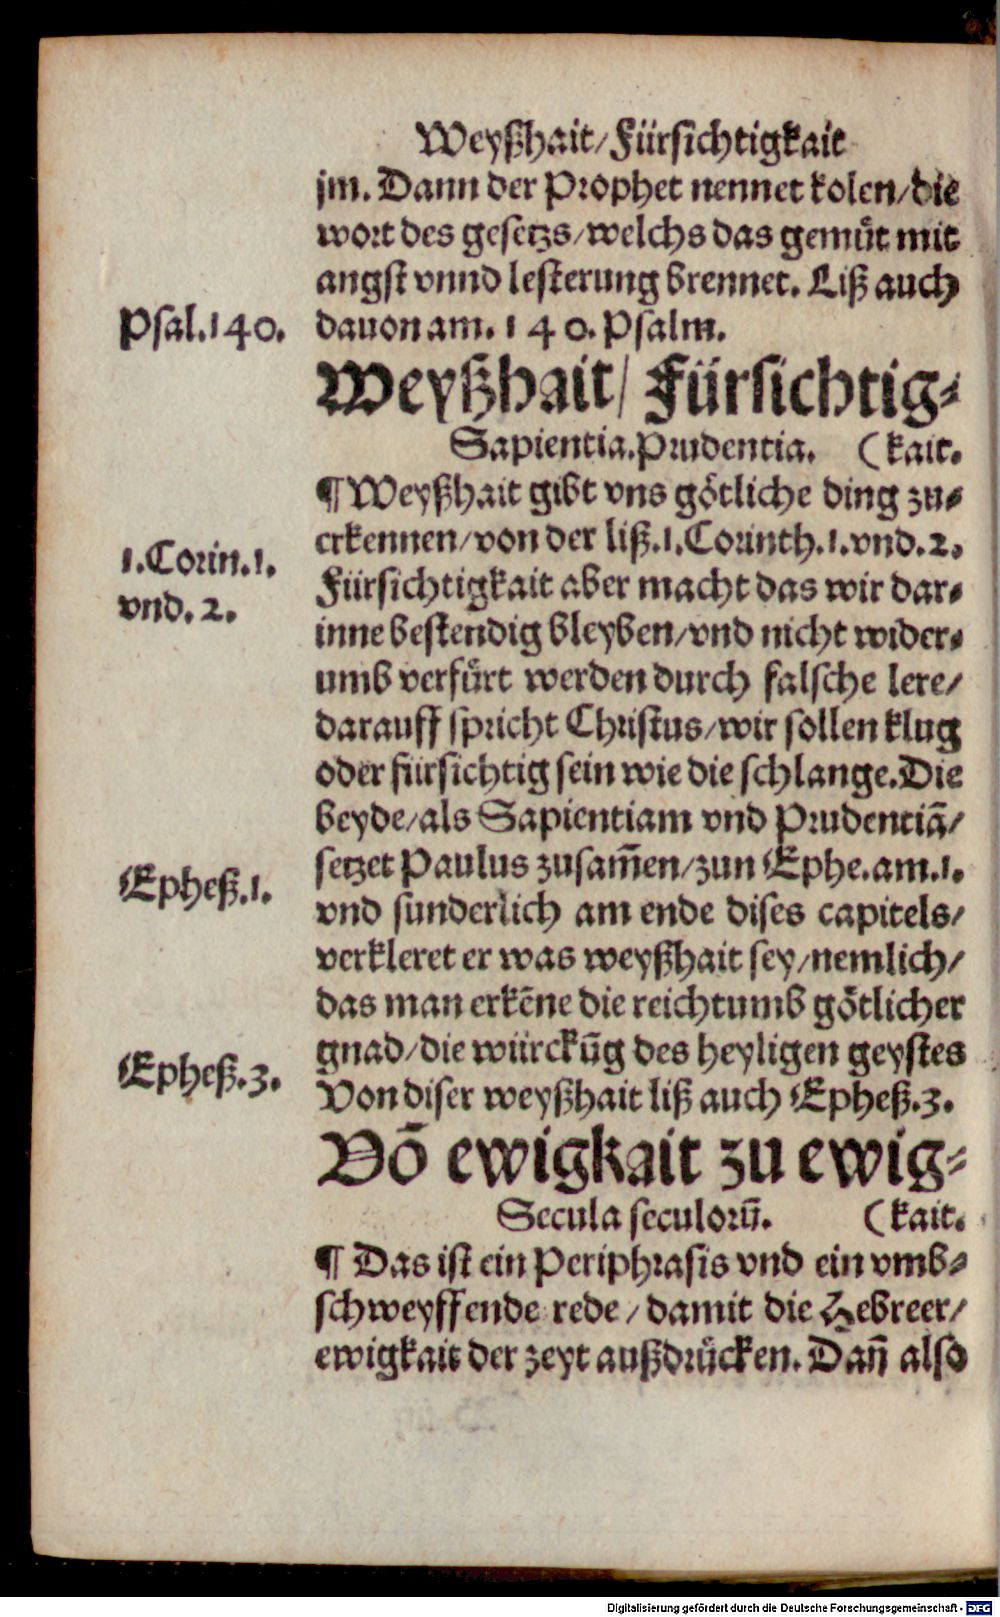 Weyßhait/Fürsichtigkait
jm. Dann der Prophet nennet kolen/die
wort des gesetzs/welchs das gemuͤt mit
angst vnnd lesterung brennet. Liß auch
Psal.140.
dauon am. 140. Psalm.
Weyßhait/ Fürsichtig⸗
Sapientia.Prudentia. (kait.
¶ Weyßhait gibt vns goͤtliche ding zu⸗
erkennen/von der liß.1.Corinth.1.vnd.2.
1.Corin.1.
vnd.2.
Fürsichtigkait aber macht das wir dar⸗
inne bestendig bleyben/vnd nicht wider⸗
umb verfuͤrt werden durch falsche lere/
darauff spricht Christus/wir sollen klug
oder fürsichtig sein wie die schlange.Die
beyde/als Sapientiam vnd Prudentiã/
setzet Paulus zusam̃en/zun Ephe.am.1.
Epheß.1.
vnd sunderlich am ende dises capitels/
verkleret er was weyßhait sey/nemlich/
das man erkẽne die reichtumb goͤtlicher
gnad/die würckũg des heyligen geystes
Epheß.3.
Von diser weyßhait liß auch Epheß.3.
Võ ewigkait zu ewig⸗
Secula seculorũ. (kait.
¶ Das ist ein Periphrasis vnd ein vmb⸗
schweyffende rede/damit die Hebreer/
ewigkait der zeyt außdruͤcken. Dañ also
Digitalisierung gefördert durch die Deutsche Forschungsgemeinschaft - DFG